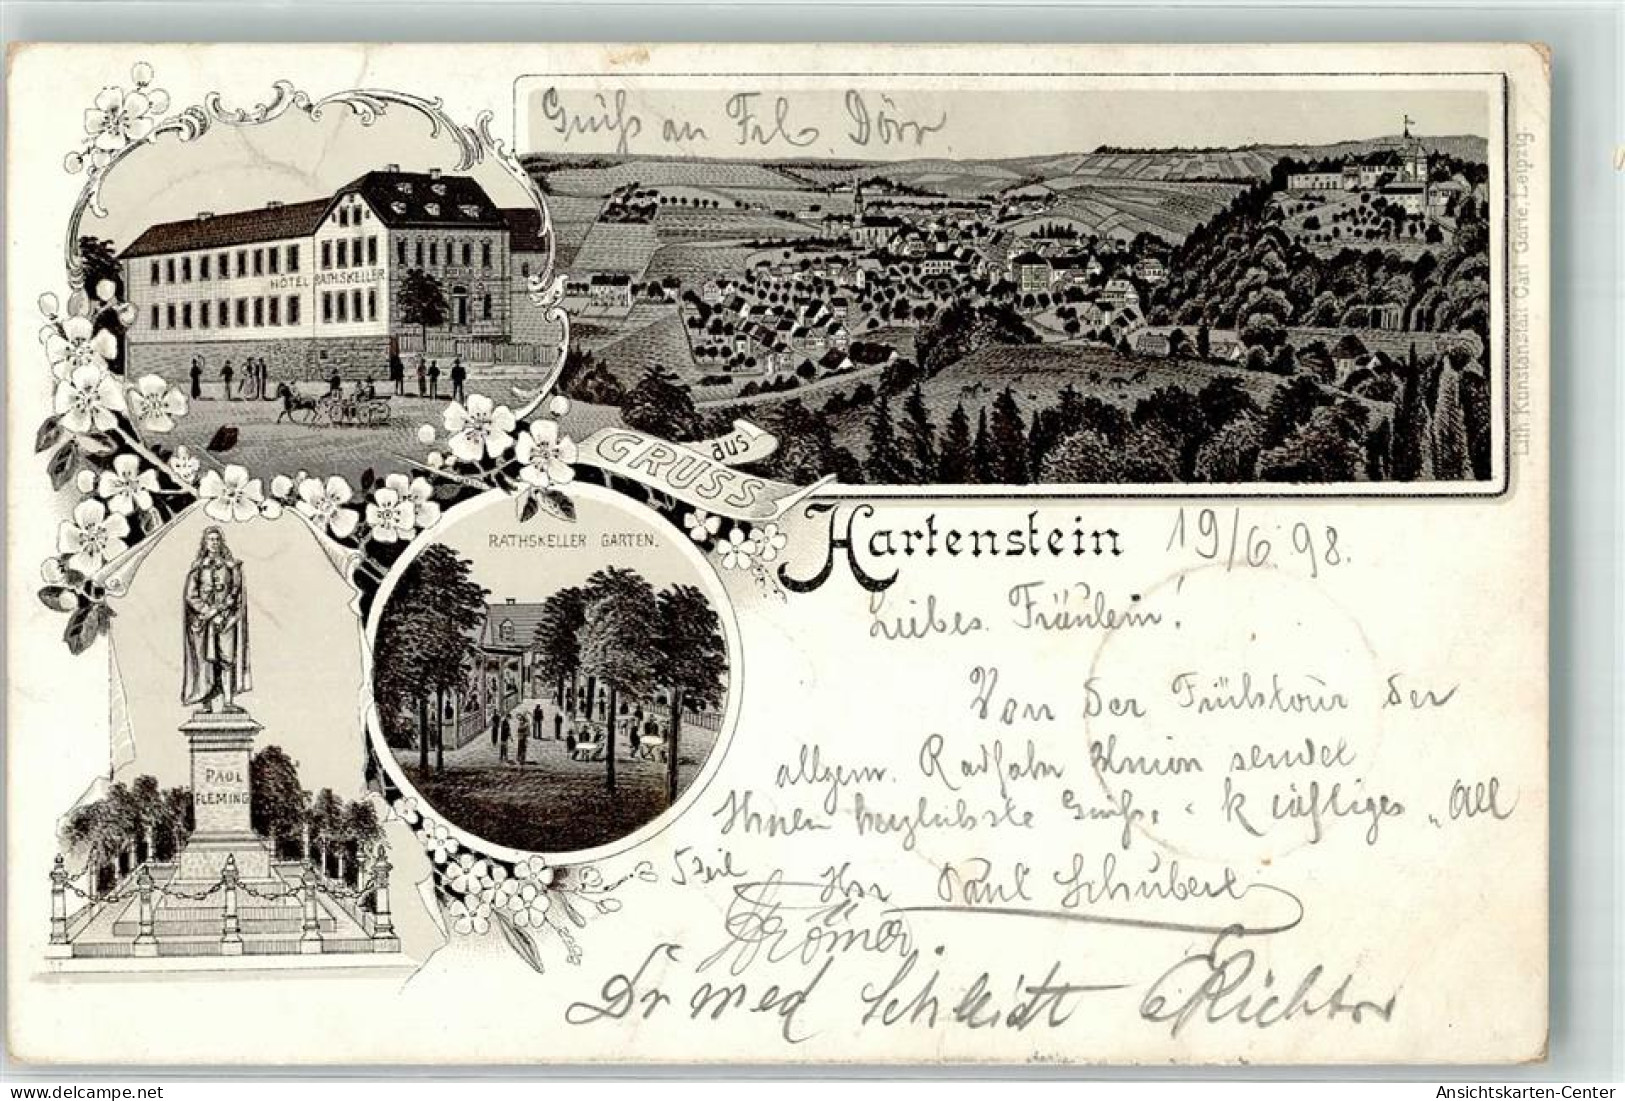 Gruß an Frl. Dörr.
HÔTEL RATHSKELLER
GRUSS
aus
Hartenstein
19/6.98.
RATHSKELLER GARTEN.
PAUL
FLEMING
Liebes Fräulein!
Von der Frühtour der
allgem. Radfahr Union sendet
Ihnen herzlichste Grüße, kräftiges „All
Heil
Ihr Paul Schubert
Krömer.
Dr med Schmidt Richter
Lith. Kunstanstalt Carl Garte, Leipzig.
Ansichtskarten-Center